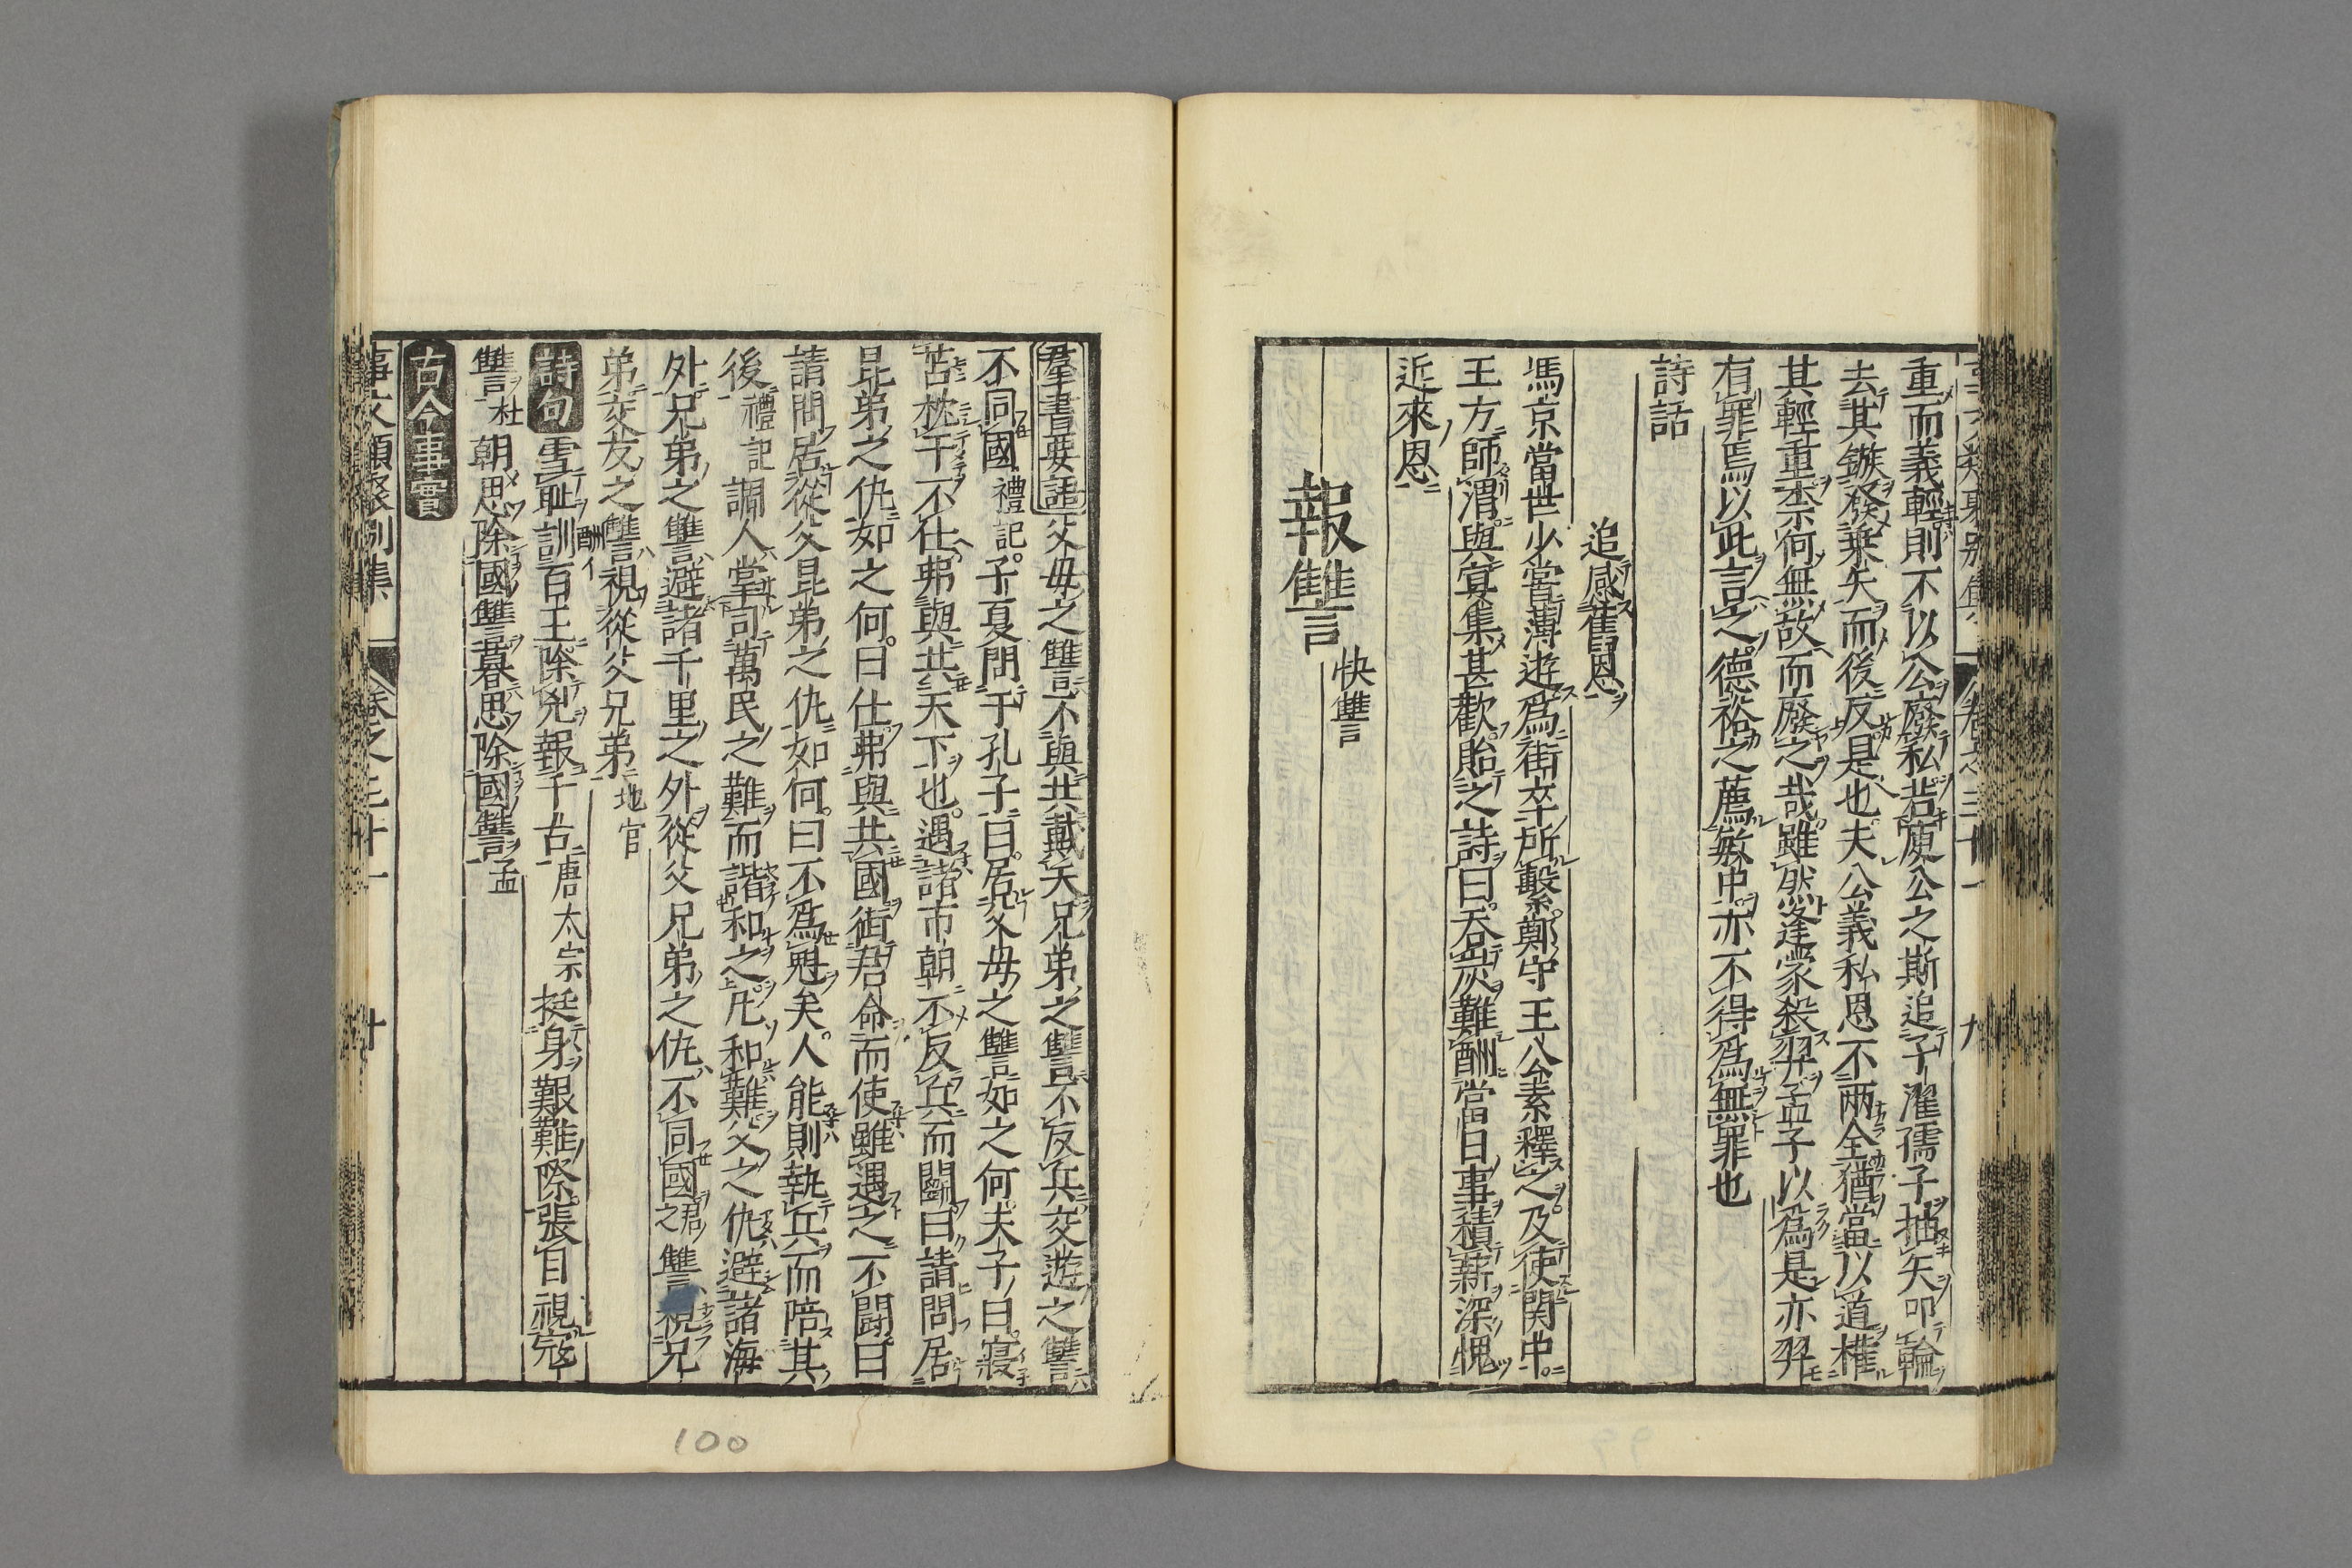 重而義輕則不以公廢私若庾公之斯追子濯孺子抽矢叩輪
去其鏃發乗矢而後反是也夫公義私恩不兩全猶當以道權
其輕重柰何無故而廢之哉雖然逢蒙殺羿孟子以爲是亦羿
有罪焉以此言之德裕之薦敏中亦不得爲無罪也
詩話
追感舊恩
馮京當世少嘗薄遊爲街卒所繫鄭守王公素釋之及使関中
王方師渭與宴集甚歡貽之詩曰吞炭難酬當日事積薪深愧
近來恩
報讐 快讐
羣書要語 父母之讐不與共戴天兄弟之讐不反兵交遊之讐
不同國 禮記 子夏問于孔子曰居父母之讐如之何夫子曰寢
苫枕干不仕弗與共天下也遇諸市朝不反兵而鬪曰請問居
昆弟之仇如之何曰仕弗與共國銜君命而使雖遇之不鬪曰
請問居從父昆弟之仇如何曰不爲魁矣人能則執兵而陪其
後 禮記 調人掌司萬民之難而諧和之凡和難父之仇避諸海
外兄弟之讐避諸千里之外從父兄弟之仇不同國君之讐視兄
弟交友之讐視從父兄弟 地官
詩句 雪耻訓百王除兇報千古 唐太宗 挺身艱難際張目視寇
讐 杜 朝思除國讐暮思除國讐 孟
古今事實
事文類聚別集 卷之三十一 十
100